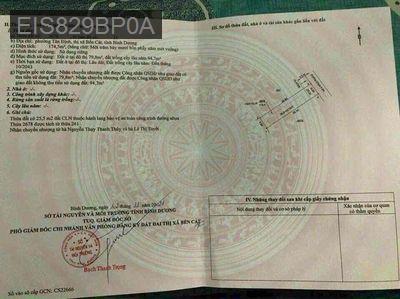 EJS829BP0A
b) Địa chỉ: phường Tân Định, thị xã Bến Cát, tỉnh Bình Dương
c) Diện tích: 174,5m², (bằng chữ: Một trăm bảy mươi bốn phẩy năm mét vuông)
d) Hình thức sử dụng: Sử dụng riêng
đ) Mục đích sử dụng: Đất ở tại đô thị: 79,8m²; Đất trồng cây lâu năm: 94,7m²
e) Thời hạn sử dụng: Đất ở tại đô thị: Lâu dài; Đất trồng cây lâu năm: Đến tháng
10/2043
g) Nguồn gốc sử dụng: Nhận chuyển nhượng đất được Công nhận QSDĐ như giao đất có
thu tiền sử dụng đất: 79,8m²; Nhận chuyển nhượng đất được Công nhận QSDĐ như giao
đất không thu tiền sử dụng đất: 94,7m²
2. Nhà ở: -/-
3. Công trình xây dựng khác: -/-
4. Rừng sản xuất là rừng trồng: -/-
5. Cây lâu năm: -/-
6. Ghi chú:
Thửa đất có 25,5 m² đất CLN thuộc hành lang bảo vệ an toàn công trình đường nhựa
Thửa 2678 được tách từ thửa 241
Nhận chuyển nhượng từ bà Nguyễn Thụy Thanh Thúy và bà Lê Thị Tuyết
III. Sơ đồ thửa đất, nhà ở và tài sản khác gắn liền với đất
Bình Dương, ngày
SỞ TÀI NGUYÊN VÀ MÔI TRƯỜNG TỈNH BÌNH DƯƠNG
TUQ. GIÁM ĐỐC SỞ
PHÓ GIÁM ĐỐC CHI NHÁNH VĂN PHÒNG ĐĂNG KÝ ĐẤT ĐAI THỊ XÃ BẾN CÁT
Bạch Thanh Trọng
Số vào sổ cấp GCN: CS22666
IV. Những thay đổi sau khi cấp giấy chứng nhận
Nội dung thay đổi và cơ sở pháp lý
Xác nhận của cơ quan
có thẩm quyền